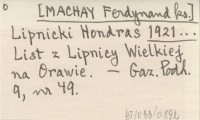 [MACHAY Ferdynand ks.]
Lipnicki Hondras 1921...
List z Lipnicy Wielkiej
na Orawie. — Gaz. Podh.
9, nr 49.